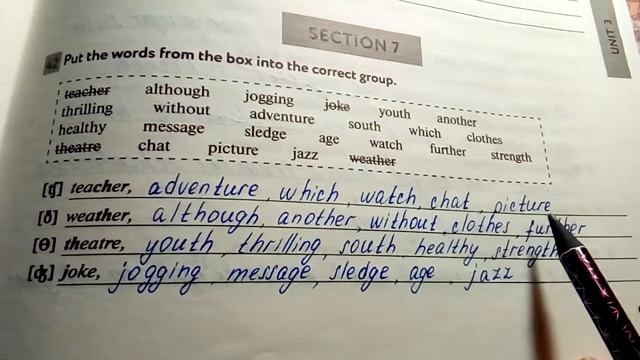 SECTION 7
UNIT 3
42 Put the words from the box into the correct group.
teacher although jogging joke youth another
thrilling without adventure south which clothes
healthy message sledge age watch further strength
theatre chat picture jazz weather
[ʧ] teacher, adventure, which, watch, chat, picture
[ð] weather, although, another, without, clothes, further
[θ] theatre, youth, thrilling, south, healthy, strength
[ʤ] joke, jogging, message, sledge, age, jazz